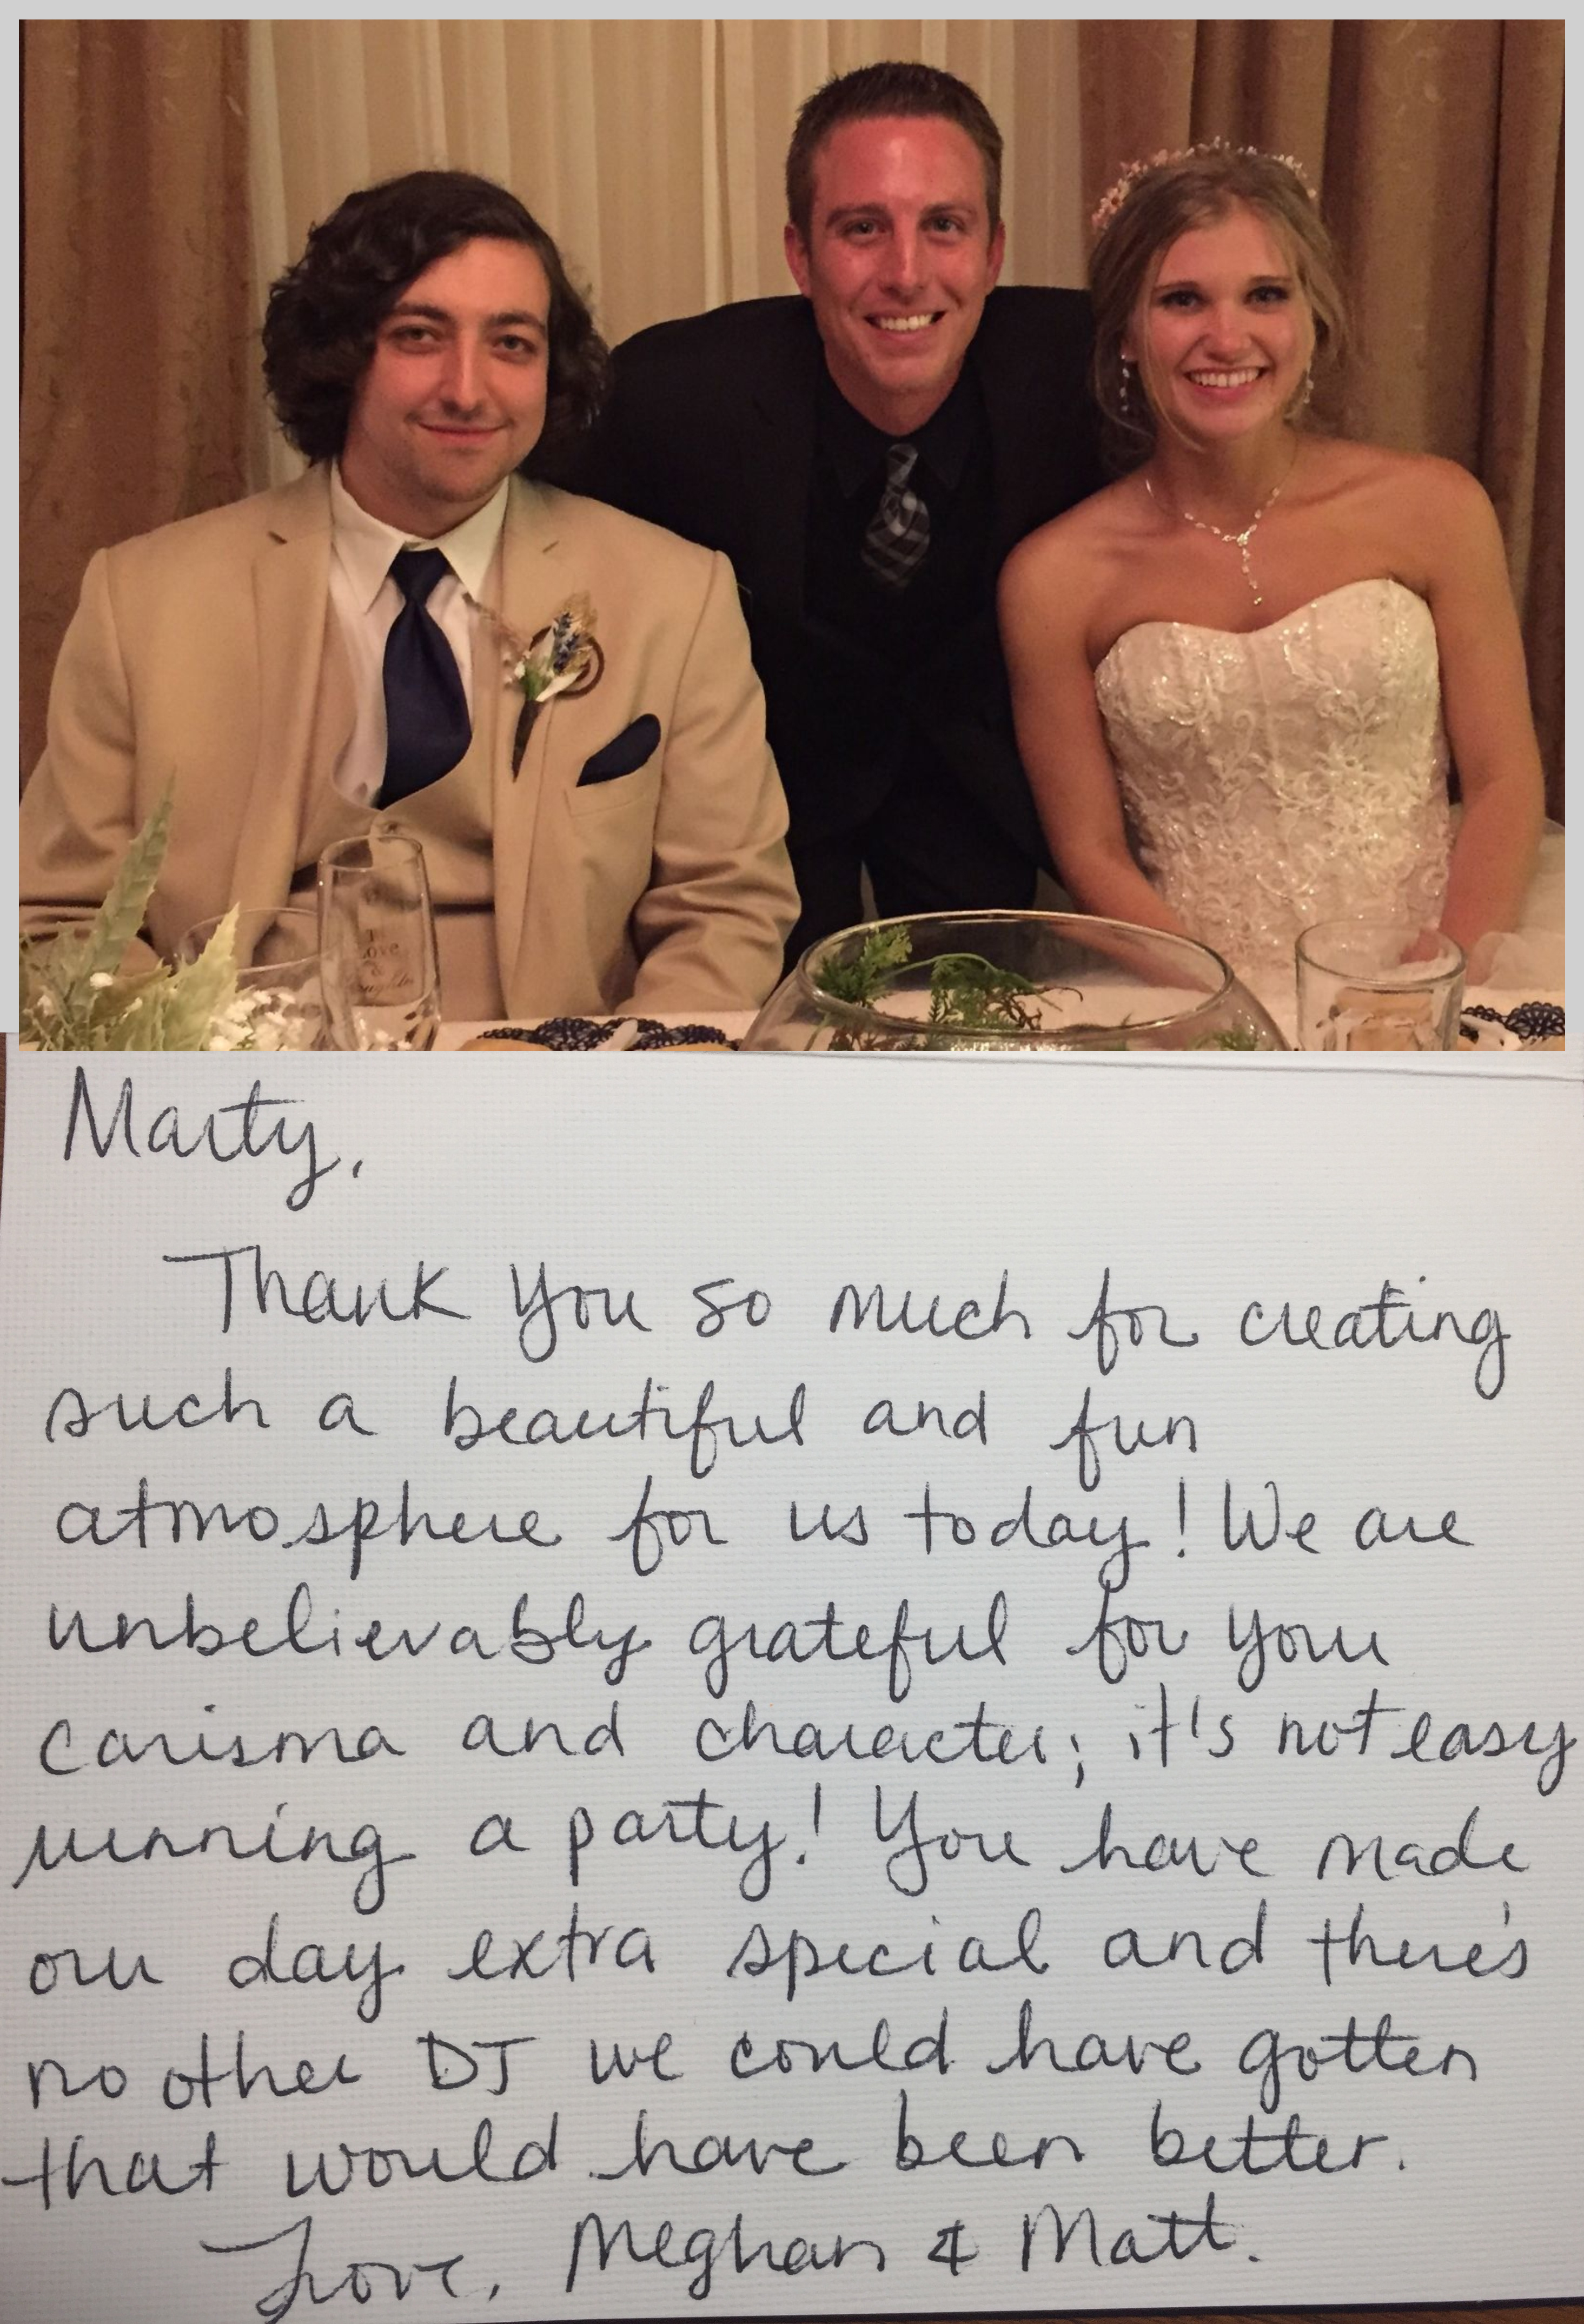 To
Love
&
Marty,
Thank You so much for creating
such a beautiful and fun
atmosphere for us today! We are
unbelievably grateful for your
carisma and character; it's not easy
running a party! You have made
our day extra special and there's
no other DJ we could have gotten
that would have been better.
Love, Meghan & Matt.